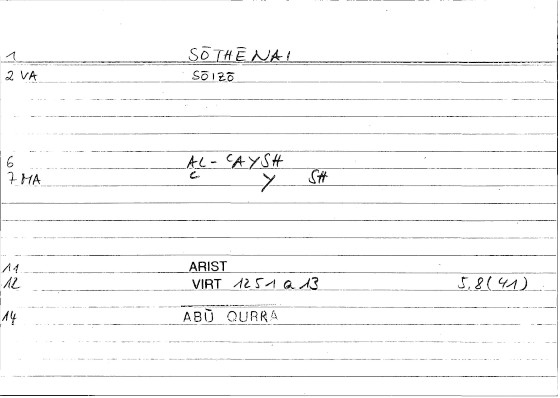 1 SŌTHĒNAI
2 VA SŌIZŌ
6 AL-ʿAYSH
7 MA ʿ Y SH
11 ARIST
12 VIRT 1251 a 13 5.8(41)
14 ABŪ QURRA